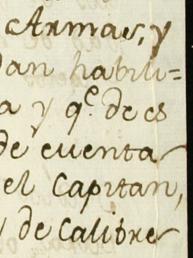 Armas, y
dan habili=
a y q.e de es
de cuenta
el Capitan,
y de Calibre